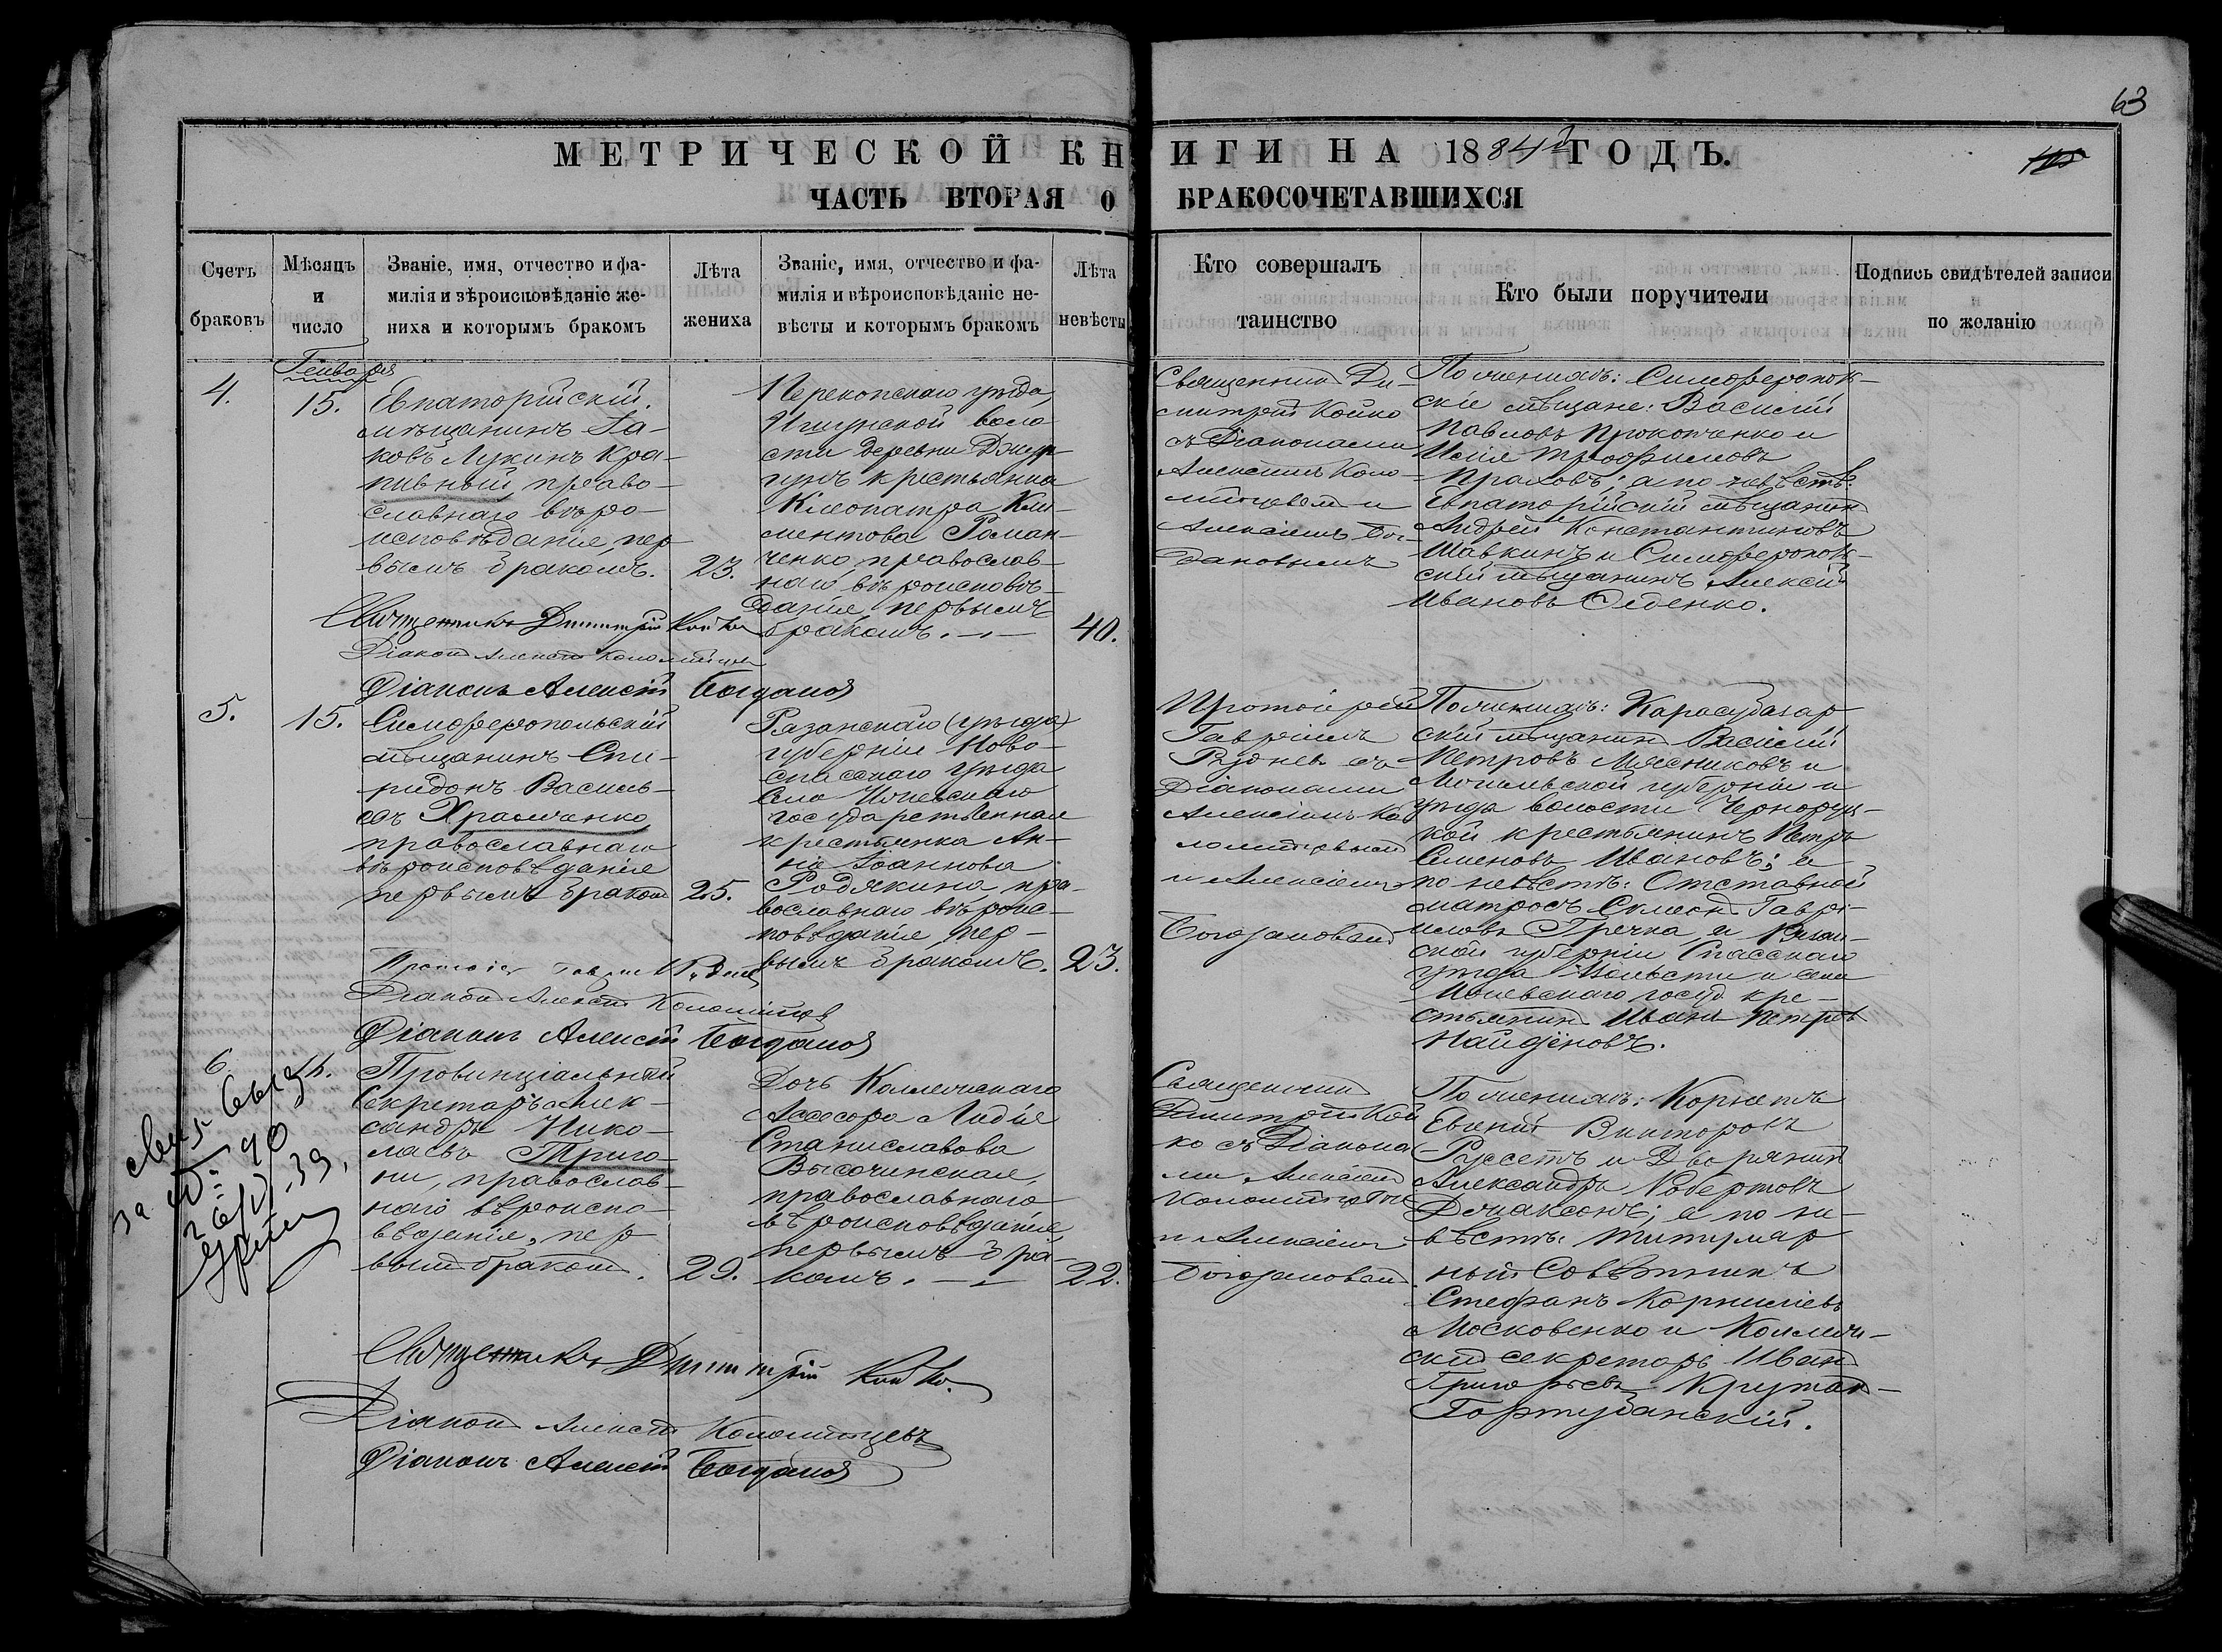 63
МЕТРИЧЕСКОЙ КНИГИ НА 1884й ГОДЪ.
ЧАСТЬ ВТОРАЯ О БРАКОСОЧЕТАВШИХСЯ
Счетъ
браковъ
Мѣсяцъ
и
число
Званіе, имя, отчество и фа-
милія и вѣроисповѣданіе же-
ниха и которымъ бракомъ
Лѣта
жениха
Званіе, имя, отчество и фа-
милія и вѣроисповѣданіе не-
вѣсты и которымъ бракомъ
Лѣта
невѣсты
Кто совершалъ
таинство
Кто были поручители
Подпись свидѣтелей записи
по желанію
Генваря
4.
15.
Евпаторійскій
мѣщанинъ Іа-
ковъ Лукинъ Кра-
пивный, право-
славнаго вѣро-
исповѣданія, пер
вымъ бракомъ.
23.
Перекопскаго уѣзда,
Ишунской воло
сти деревни
крестьянка
Клеопатра Кли-
ментова Роман-
ченко, православ-
наго вѣроисповѣ-
данія, первымъ
бракомъ.
40.
Священникъ Ди-
митрій Койко
съ Діаконами
Алексіемъ Коло-
мійцевым и
Алексіемъ Бог-
дановымъ
По женихѣ: Симферополь-
скіе мѣщане: Василій
Павловъ Прокопченко и
Трофимовъ
а по невѣстѣ:
Евпаторійскій мѣщанинъ
Андрей Константиновъ
Шавкинъ и Симферополь-
скій мѣщанинъ Алексій
Ивановъ Сѣденко.
Священникъ Димитрій Койко
Діаконъ Алексій Коломійцев
Діаконъ Алексій Богданов
5.
15.
Симферопольскій
мѣщанинъ Спи-
ридонъ Василь-
евъ Храмченко
православнаго
вѣроисповѣданія
первымъ браком
25.
Рязанскаго (уѣзда)
губерніи Ново-
спасскаго уѣзда
села
государственная
крестьянка Ан-
на Іоаннова
Родякина пра-
вославнаго вѣроис-
повѣданія, пер-
вымъ бракомъ.
23.
Протоіерей
Гавріилъ
Руднев съ
Діаконами
Алексіемъ Ко
ломійцевым
и Алексіемъ
Богдановым
По женихѣ: Карасубазар
скій мѣщанинъ Василій
Петровъ Мясниковъ и
Могилевской губерніи и
уѣзда волости Черноруц-
кой крестьянинъ Петръ
Семеновъ Ивановъ; а
по невѣстѣ: Отставной
матросъ Симеонъ Гаврі-
иловъ Гречка и Рязан-
ской губерніи Спасскаго
уѣзда волости и села
госуд. кре-
стьянинъ Иванъ Петровъ
Найдёновъ.
Діаконъ Алексій Коломійцев
Діаконъ Алексій Богданов
6.
Провинціальный
Секретарь Алек-
сандръ Нико-
лаевъ Триго-
ни, православ-
наго вѣроиспо-
вѣданія, пер
вым бракомъ.
29.
Дочь Коллежскаго
Ассесора Лидія
Станиславова
Высочинская,
православнаго
вѣроисповѣданія,
первымъ бра-
комъ.
22.
Священникъ
Димитрій Кой
ко съ Діакона
ми Алексіем
Коломійцевым
и Алексіемъ
Богдановым
По женихѣ: Корнетъ
Евгеній Викторовъ
Руссетъ и Дворянинъ
Александръ Робертовъ
Джаксонъ; а по не-
вѣстѣ: Титуляр
ный Совѣтникъ
Стефанъ Корниліевъ
Московенко и Коллеж-
скій секретарь Иванъ
Григорьевъ Крутой-
Священникъ Димитрій Койко.
Діаконъ Алексій Коломійцевъ
Діаконъ Алексій Богданов